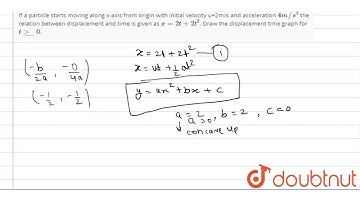 If a particle starts moving along x-axis from origin with initial velocity u=2m/s and acceleration 4m/s² the
relation between displacement and time is given as x = 2t + 2t². Draw the displacement time graph for
t ≥ 0.
x = 2t + 2t² ①
x = ut + ½at²
(-b/2a, -D/4a)
(-½, -½)
y = ax² + bx + c
a = 2, b = 2, c = 0
a > 0
concave up
doubtnut